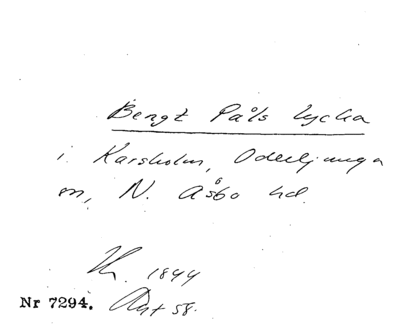 Bengt Påls lycka
i Karsholm, Oderljunga
sn, N. Åsbo hd.
1844
Nr 7294. Akt 58.